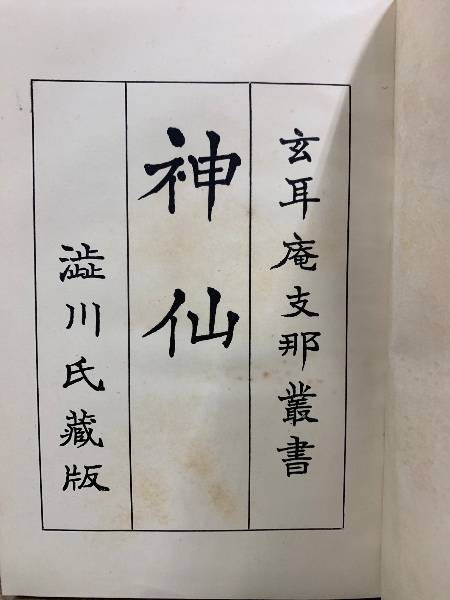 玄耳庵支那叢書
神仙
澁川氏藏版